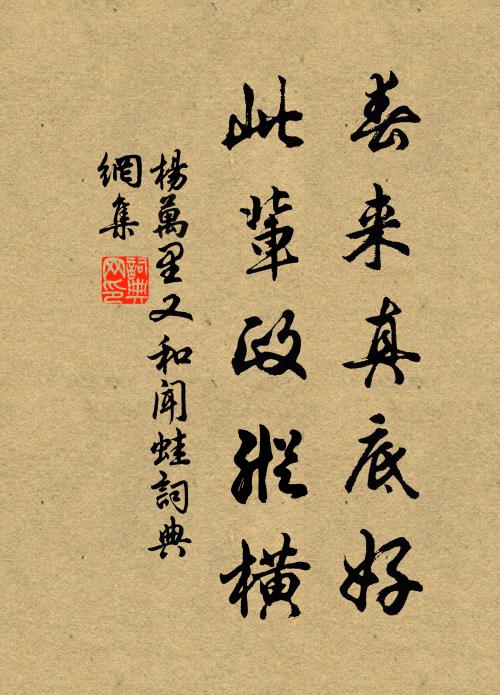 春来真底好
此輩政縱橫
楊萬里又和聞蛙詞典
網集
詞典
网印